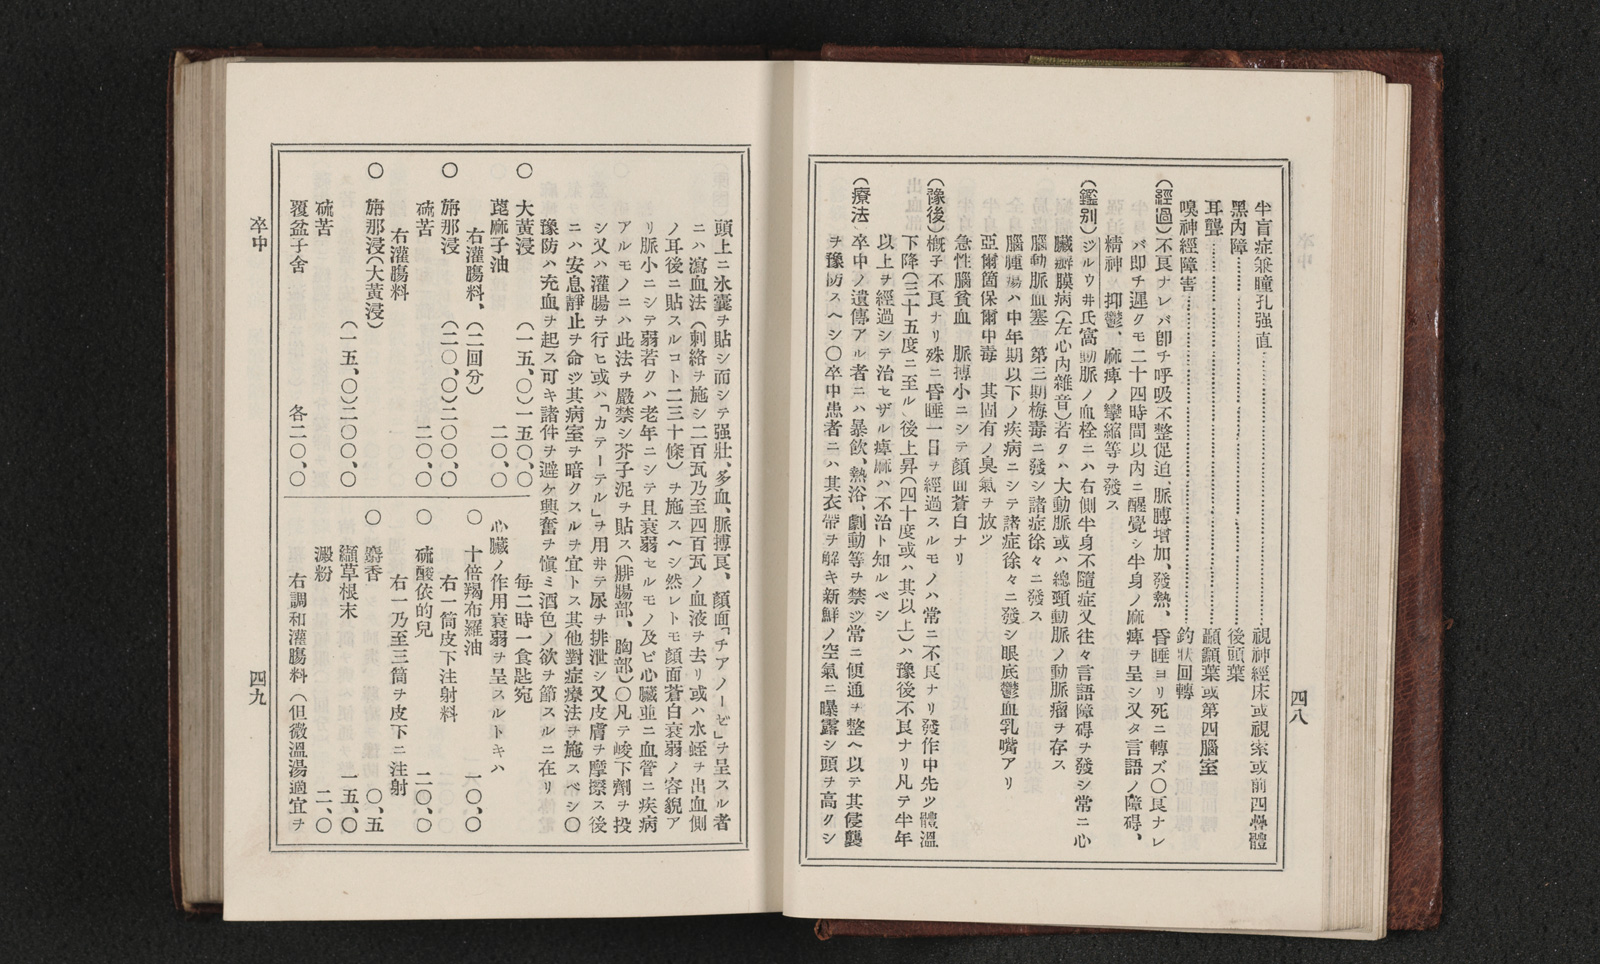 四八
半盲症兼瞳孔强直…………視神經床或視索或前四疊體
黑內障…………後頭葉
耳聾…………顳顬葉或第四腦室
嗅神經障害…………鈎狀回轉
(經過)不良ナレバ卽チ呼吸不整促迫、脈膊增加、發熱、昏睡ヨリ死ニ轉ズ〇良ナレ
バ卽チ遲クモ二十四時間以內ニ醒覺シ半身ノ麻痺ヲ呈シ又タ言語ノ障碍、
精神ノ抑鬱、麻痺ノ攣縮等ヲ發ス
(鑑别)ジルウ井氏窩動脈ノ血栓ニハ右側半身不隨症又往々言語障碍ヲ發シ常ニ心
臟瓣膜病(左心內雜音)若クハ大動脈或ハ總頸動脈ノ動脈瘤ヲ存ス
腦動脈血塞 第三期梅毒ニ發シ諸症徐々ニ發ス
腦腫瘍ハ中年期以下ノ疾病ニシテ諸症徐々ニ發シ眼底鬱血乳嘴アリ
亞爾箇保爾中毒 其固有ノ臭氣ヲ放ツ
急性腦貧血 脈搏小ニシテ顏面蒼白ナリ
(豫後)槪子不良ナリ殊ニ昏睡一日ヲ經過スルモノハ常ニ不良ナリ發作中先ツ體溫
下降(三十五度ニ至ル)後上昇(四十度或ハ其以上)ハ豫後不良ナリ凡テ半年
以上ヲ經過シテ治セザル痺麻ハ不治ト知ルベシ
(療法)卒中ノ遺傳アル者ニハ暴飮、熱浴、劇動等ヲ禁ジ常ニ便通ヲ整ヘ以テ其侵襲
ヲ豫防スヘシ〇卒中患者ニハ其衣帶ヲ解キ新鮮ノ空氣ニ曝露シ頭ヲ高クシ
頭上ニ氷囊ヲ貼シ而シテ强壯、多血、脈搏良、顏面「チアノーゼ」ヲ呈スル者
ニハ瀉血法(刺絡ヲ施シ二百瓦乃至四百瓦ノ血液ヲ去リ或ハ水蛭ヲ出血側
ノ耳後ニ貼スルコト二三十條)ヲ施スヘシ然レトモ顏面蒼白衰弱ノ容貌ア
リ脈小ニシテ弱若クハ老年ニシテ且衰弱セルモノ及ビ心臟並ニ血管ニ疾病
アルモノニハ此法ヲ嚴禁シ芥子泥ヲ貼ス(腓腸部、胸部)〇凡テ峻下劑ヲ投
シ又ハ灌腸ヲ行ヒ或ハ「カテーテル」ヲ用井テ尿ヲ排泄シ又皮膚ヲ摩擦ス後
ニハ安息靜止ヲ命ジ其病室ヲ暗クスルヲ宜トス其他對症療法ヲ施スベシ〇
豫防ハ充血ヲ起ス可キ諸件ヲ避ケ興奮ヲ愼ミ酒色ノ欲ヲ節スルニ在リ
〇 大黃浸 (一五、〇)一五〇、〇
蓖麻子油 二〇、〇
右灌腸料、(二回分)
〇 旃那浸 (二〇、〇)二〇〇、〇
硫苦 二〇、〇
右灌腸料
〇 旃那浸(大黃浸)
(一五、〇)二〇〇、〇
硫苦
覆盆子舍 各二〇、〇
每二時一食匙宛
心臟ノ作用衰弱ヲ呈スルトキハ
〇 十倍羯布羅油 一〇、〇
右一筒皮下注射料
〇 硫酸依的兒 二〇、〇
右一乃至三筒ヲ皮下ニ注射
〇 麝香 〇、五
纈草根末 一五、〇
澱粉 二、〇
右調和灌腸料(但微溫湯適宜ヲ
卒中
四九